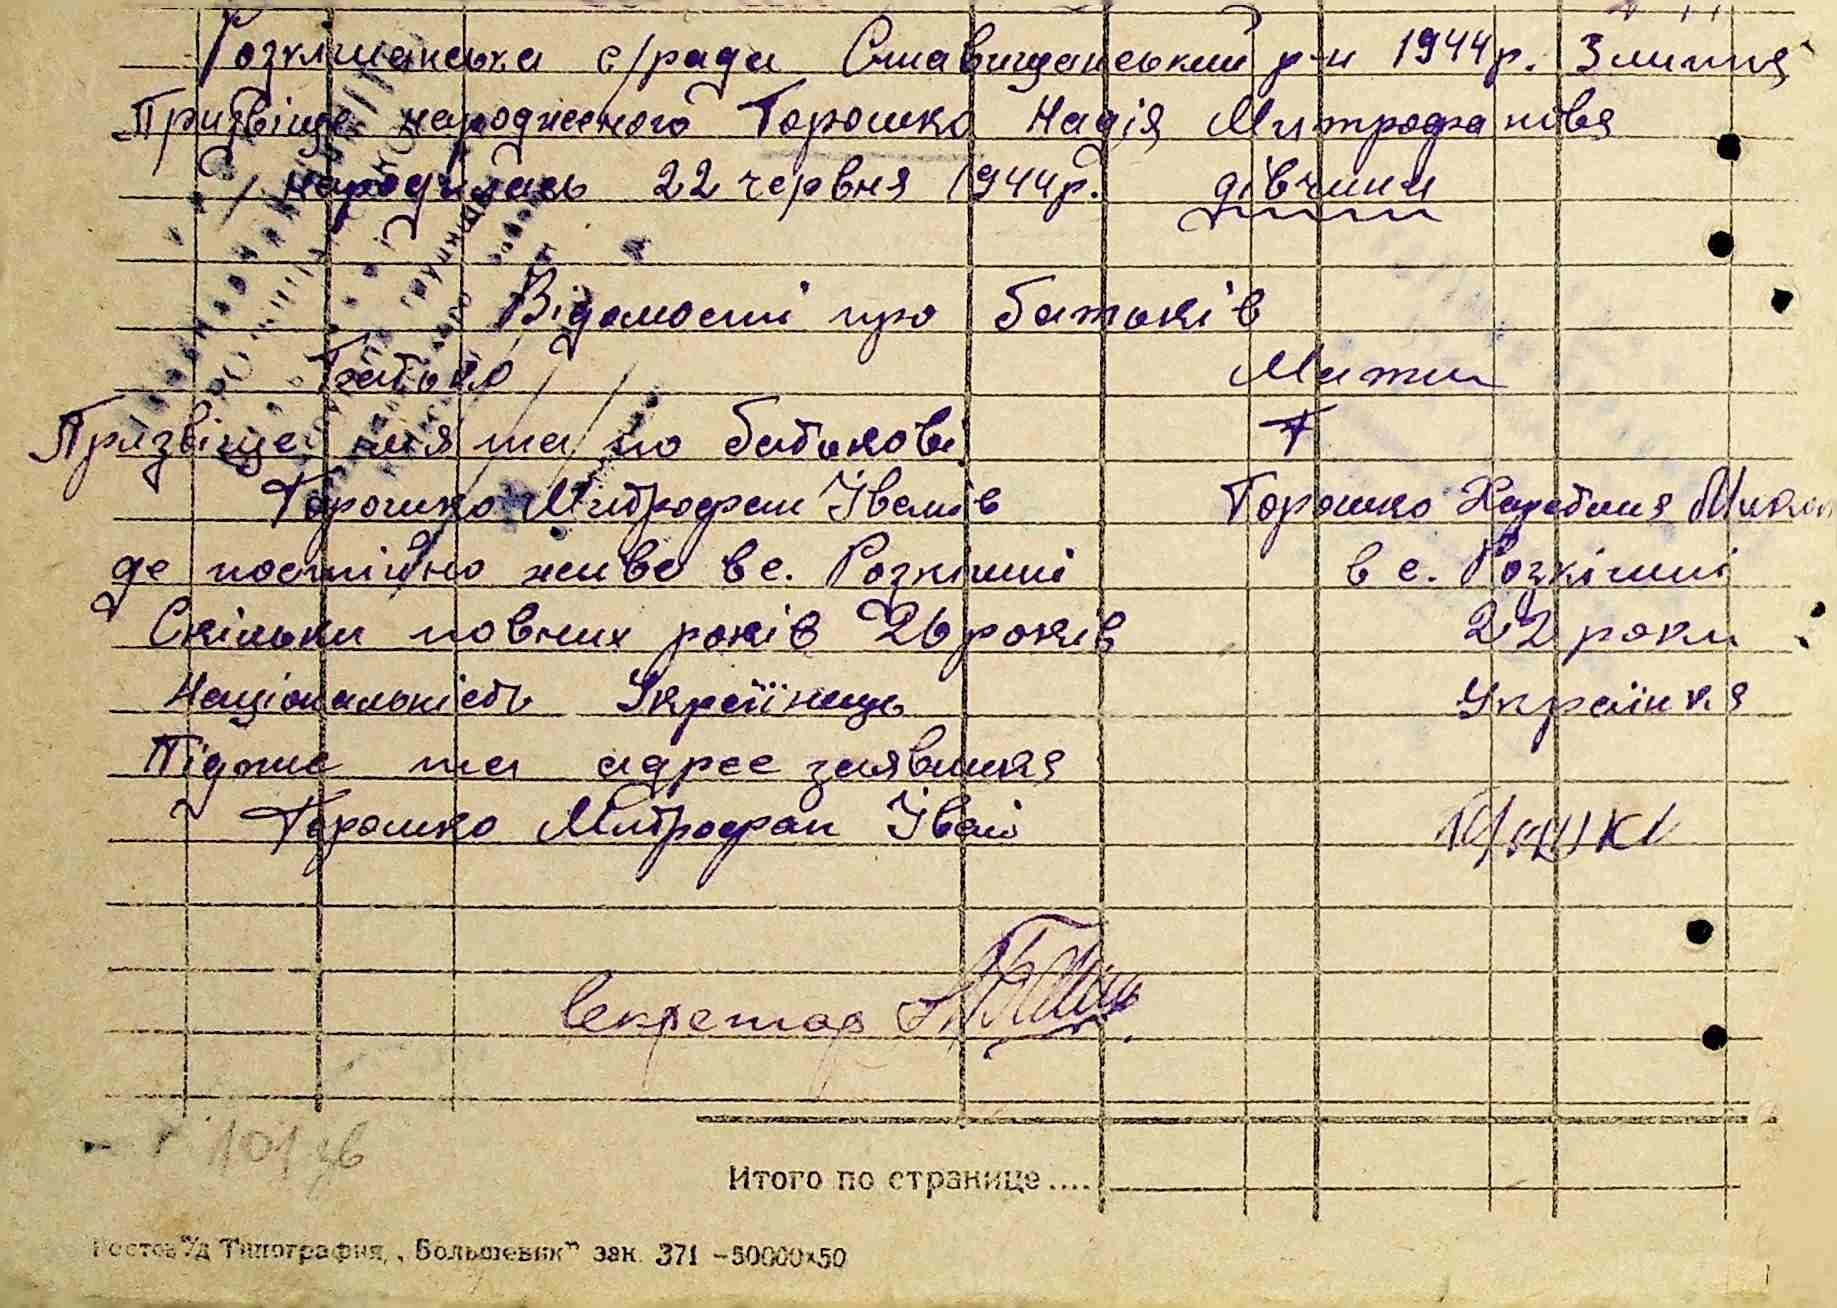 Розкішанська с/рада Ставищанський р-н 1944р. 3 липня
Призвіще народженого Торошко Надія Митрофанівя
народилась 22 червня 1944р. дівчини
Відомості про батьків
Батько Мати
Призвіще імя та по батькові
Торошко Митрофан Іванів Торошко
де постійно живе в с. Розкішні в с. Розкішні
Скільки повних років 26 років 22 роки
Національність Українець Українка
Підпис та адрес заявника
Торошко Митрофан Іван
Секретар
Итого по странице....
Ростов н/Д Типография „Большевик" зак. 371 –50000×50